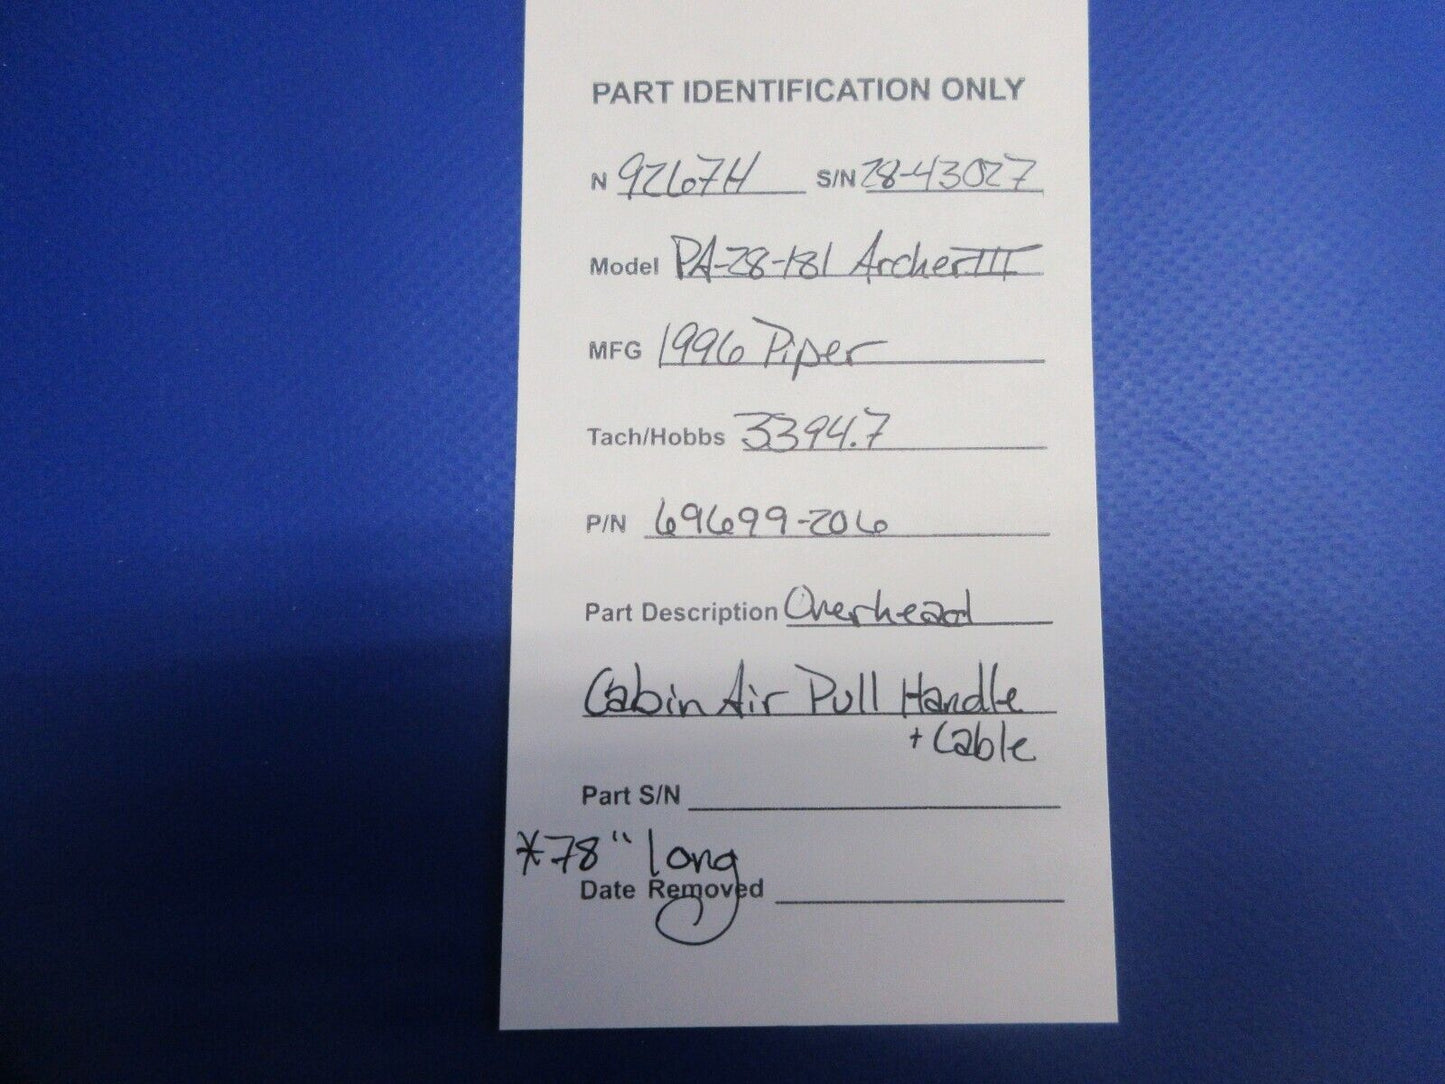 PART IDENTIFICATION ONLY
N 9267H S/N 28-43027
Model PA-28-181 Archer III
MFG 1996 Piper
Tach/Hobbs 3394.7
P/N 69699-206
Part Description Overhead
Cabin Air Pull Handle
+ Cable
Part S/N
*78" long
Date Removed